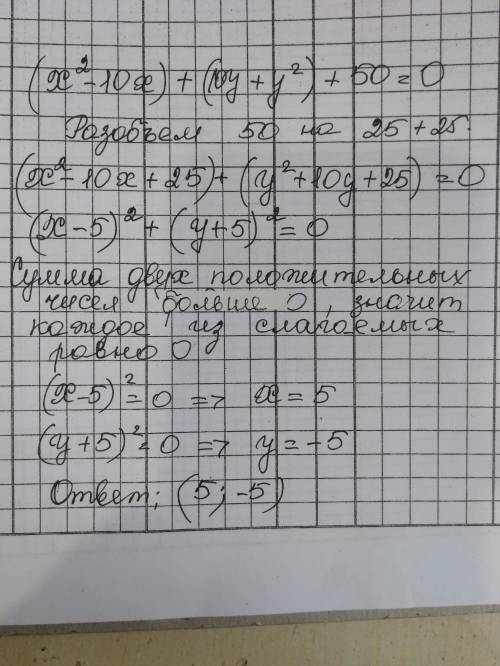 (x² - 10x) + (10y + y²) + 50 = 0
Разобьем 50 на 25 + 25.
(x² - 10x + 25) + (y² + 10y + 25) = 0
(x - 5)² + (y + 5)² = 0
Сумма двух положительных
чисел больше 0, значит
каждое из слагаемых
равно 0
(x - 5)² = 0 => x = 5
(y + 5)² = 0 => y = -5
Ответ: (5; -5)